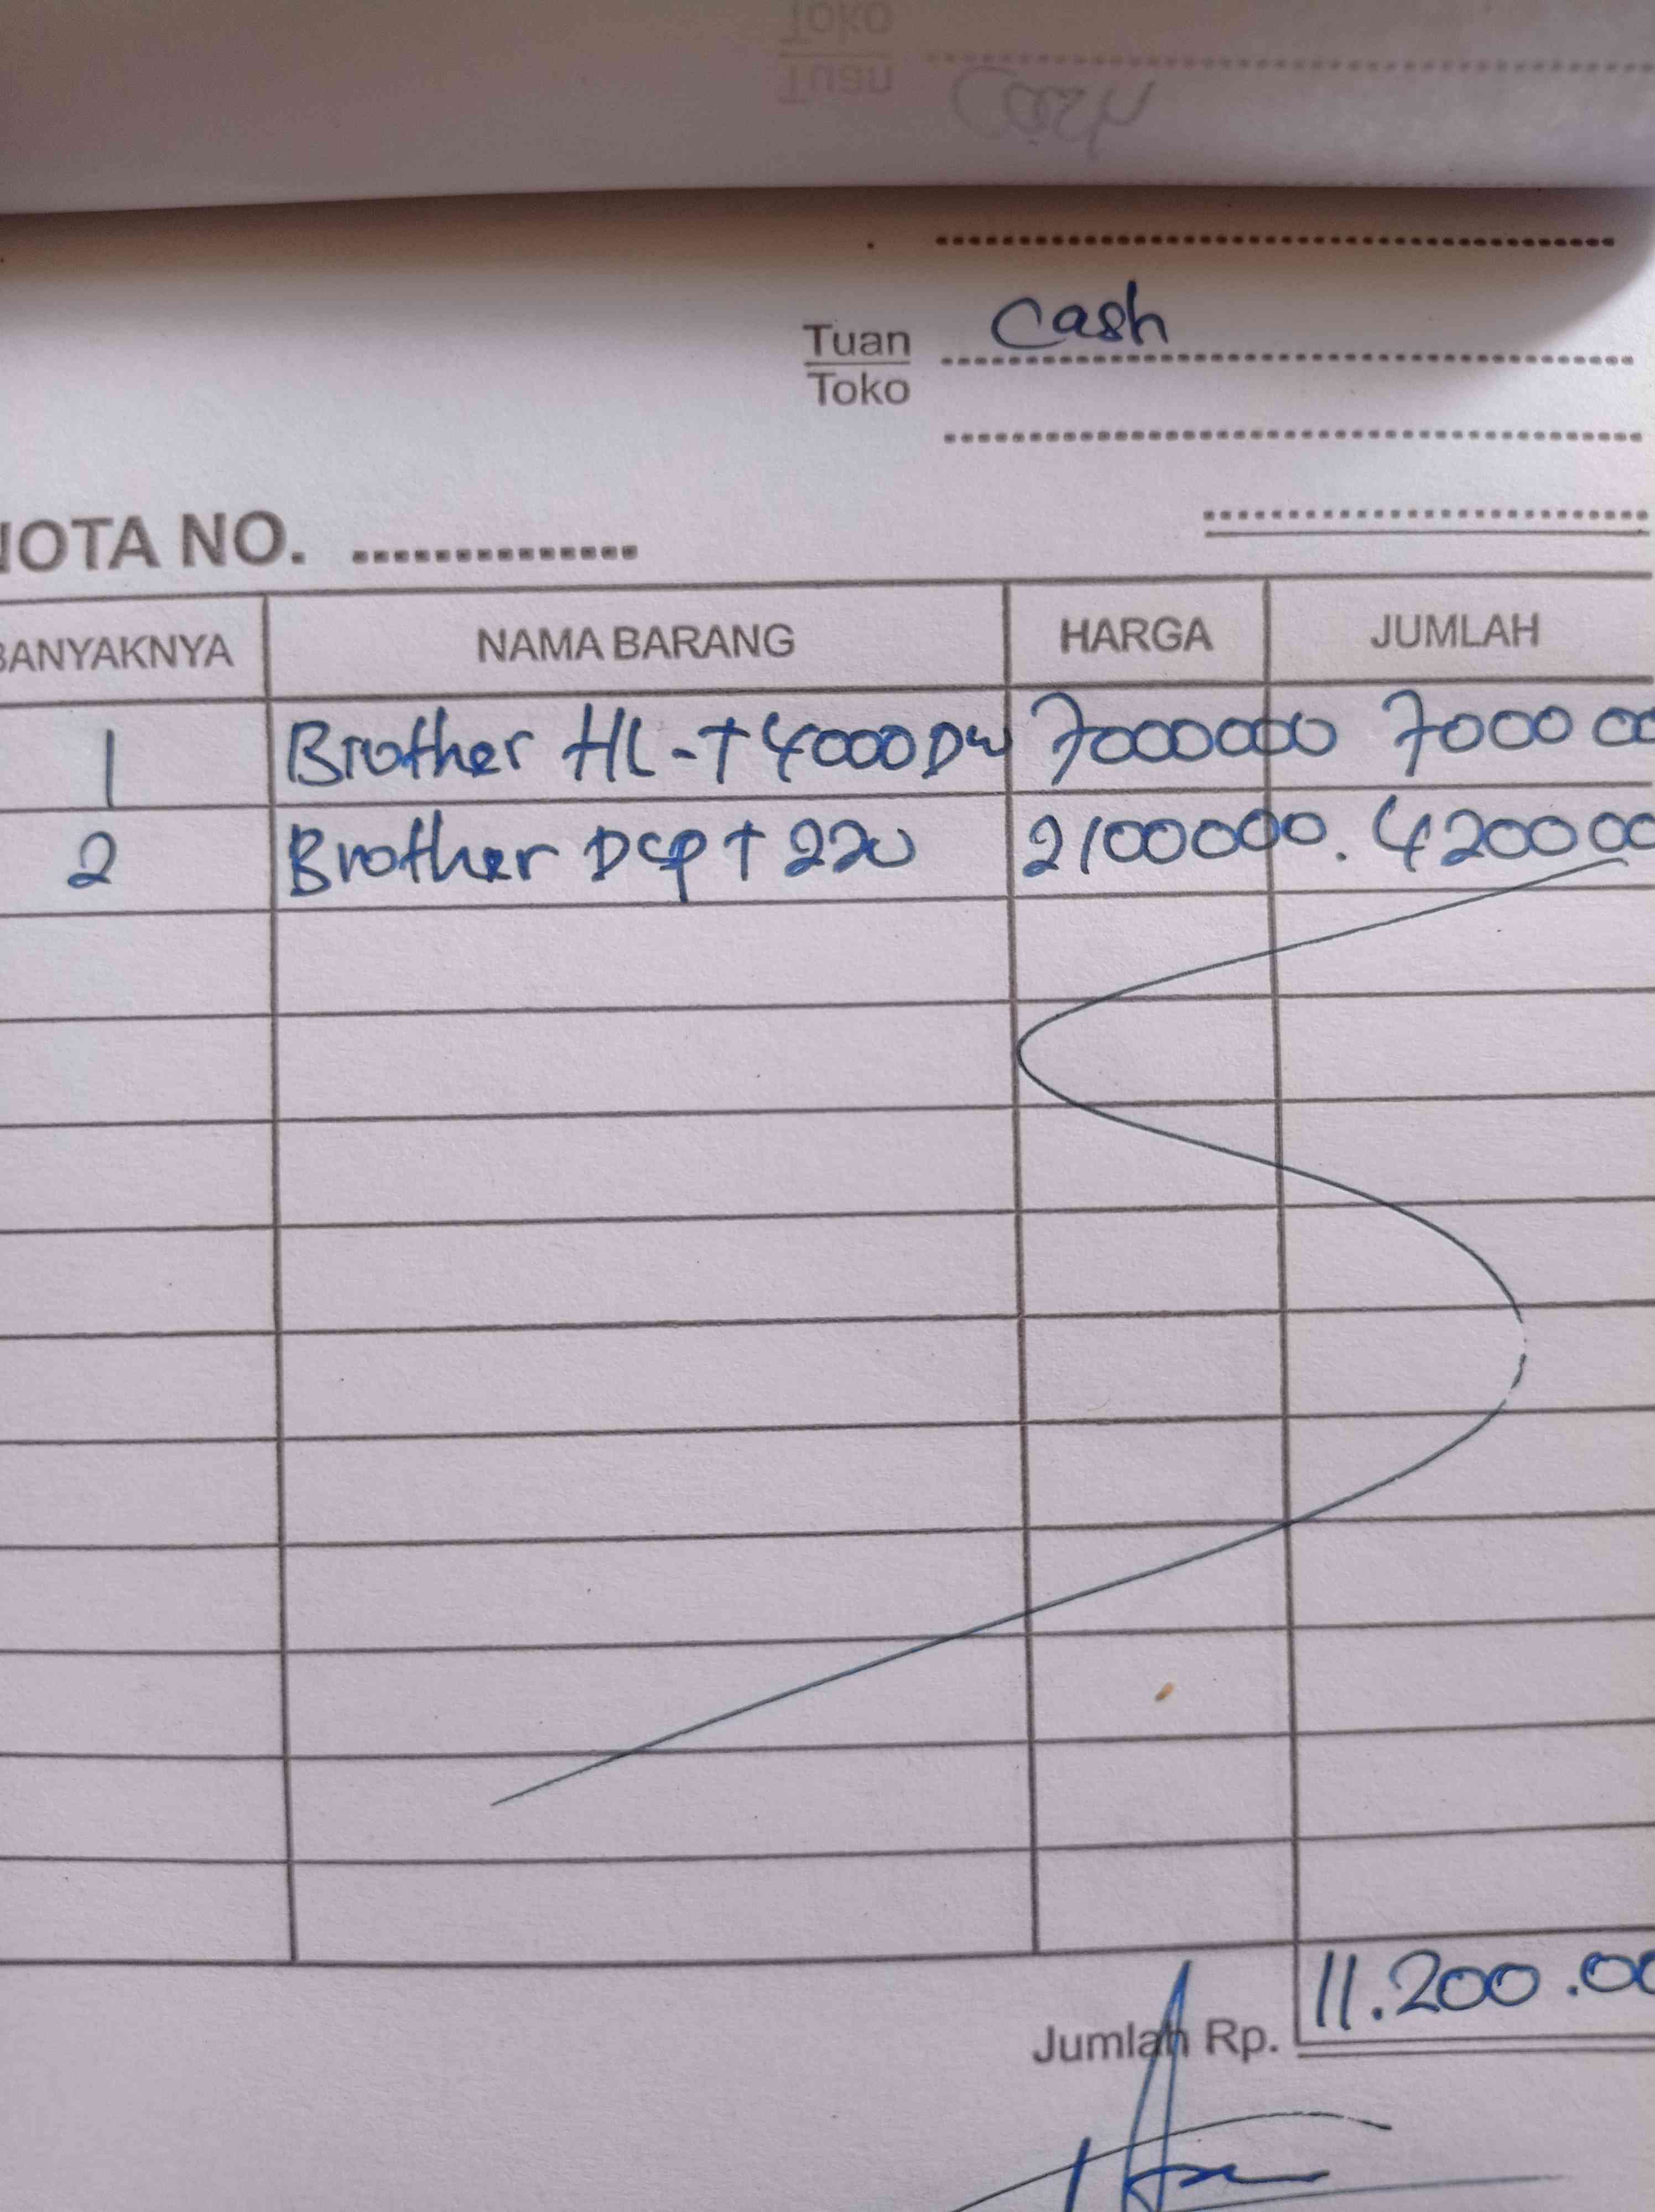 Toko
Tuan
Cash
Tuan Cash
Toko
NOTA NO. ...............
BANYAKNYA NAMA BARANG HARGA JUMLAH
1 Brother HL-T4000DW 7000000 700000
2 Brother Dcp T 220 2100000. 420000
Jumlah Rp. 11.200.00